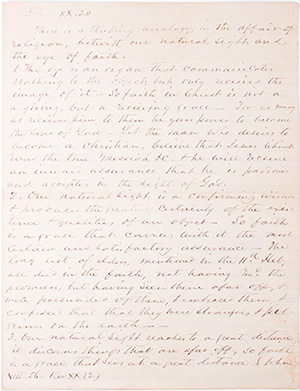 XX. 20
There is a striking analogy, in the affairs of
religion, betwixt our natural sight and
the eye of faith.
The eye is an organ that communicates
nothing to the object, but only receives the
image of it — So faith in Christ is not a
a giving, but a receiving grace — For as many
as receive him to them he gives power to become
the sons of God — Let the man who desires to
become a Christian, believe that Jesus Christ
was the true Messiah &c. & he will receive
an inward assurance that he is pardoned
and accepted in the sight of God.
2. Our natural sight is a
& produces the greatest certainty of the
of any object — So faith
is a grace that carries with it the most
certain and satisfactory assurance — The
long list of elders, mentioned in the 11th Heb.
all died in the faith, not having rec'd the
promises, but having seen them afar off, &
were persuaded of them, & embraced them, &
confessed that they were strangers & pil
grims on the earth —
3. Our natural sight reaches to a great distance
it discerns things that are afar off, So faith
is a grace that sees at a great distance